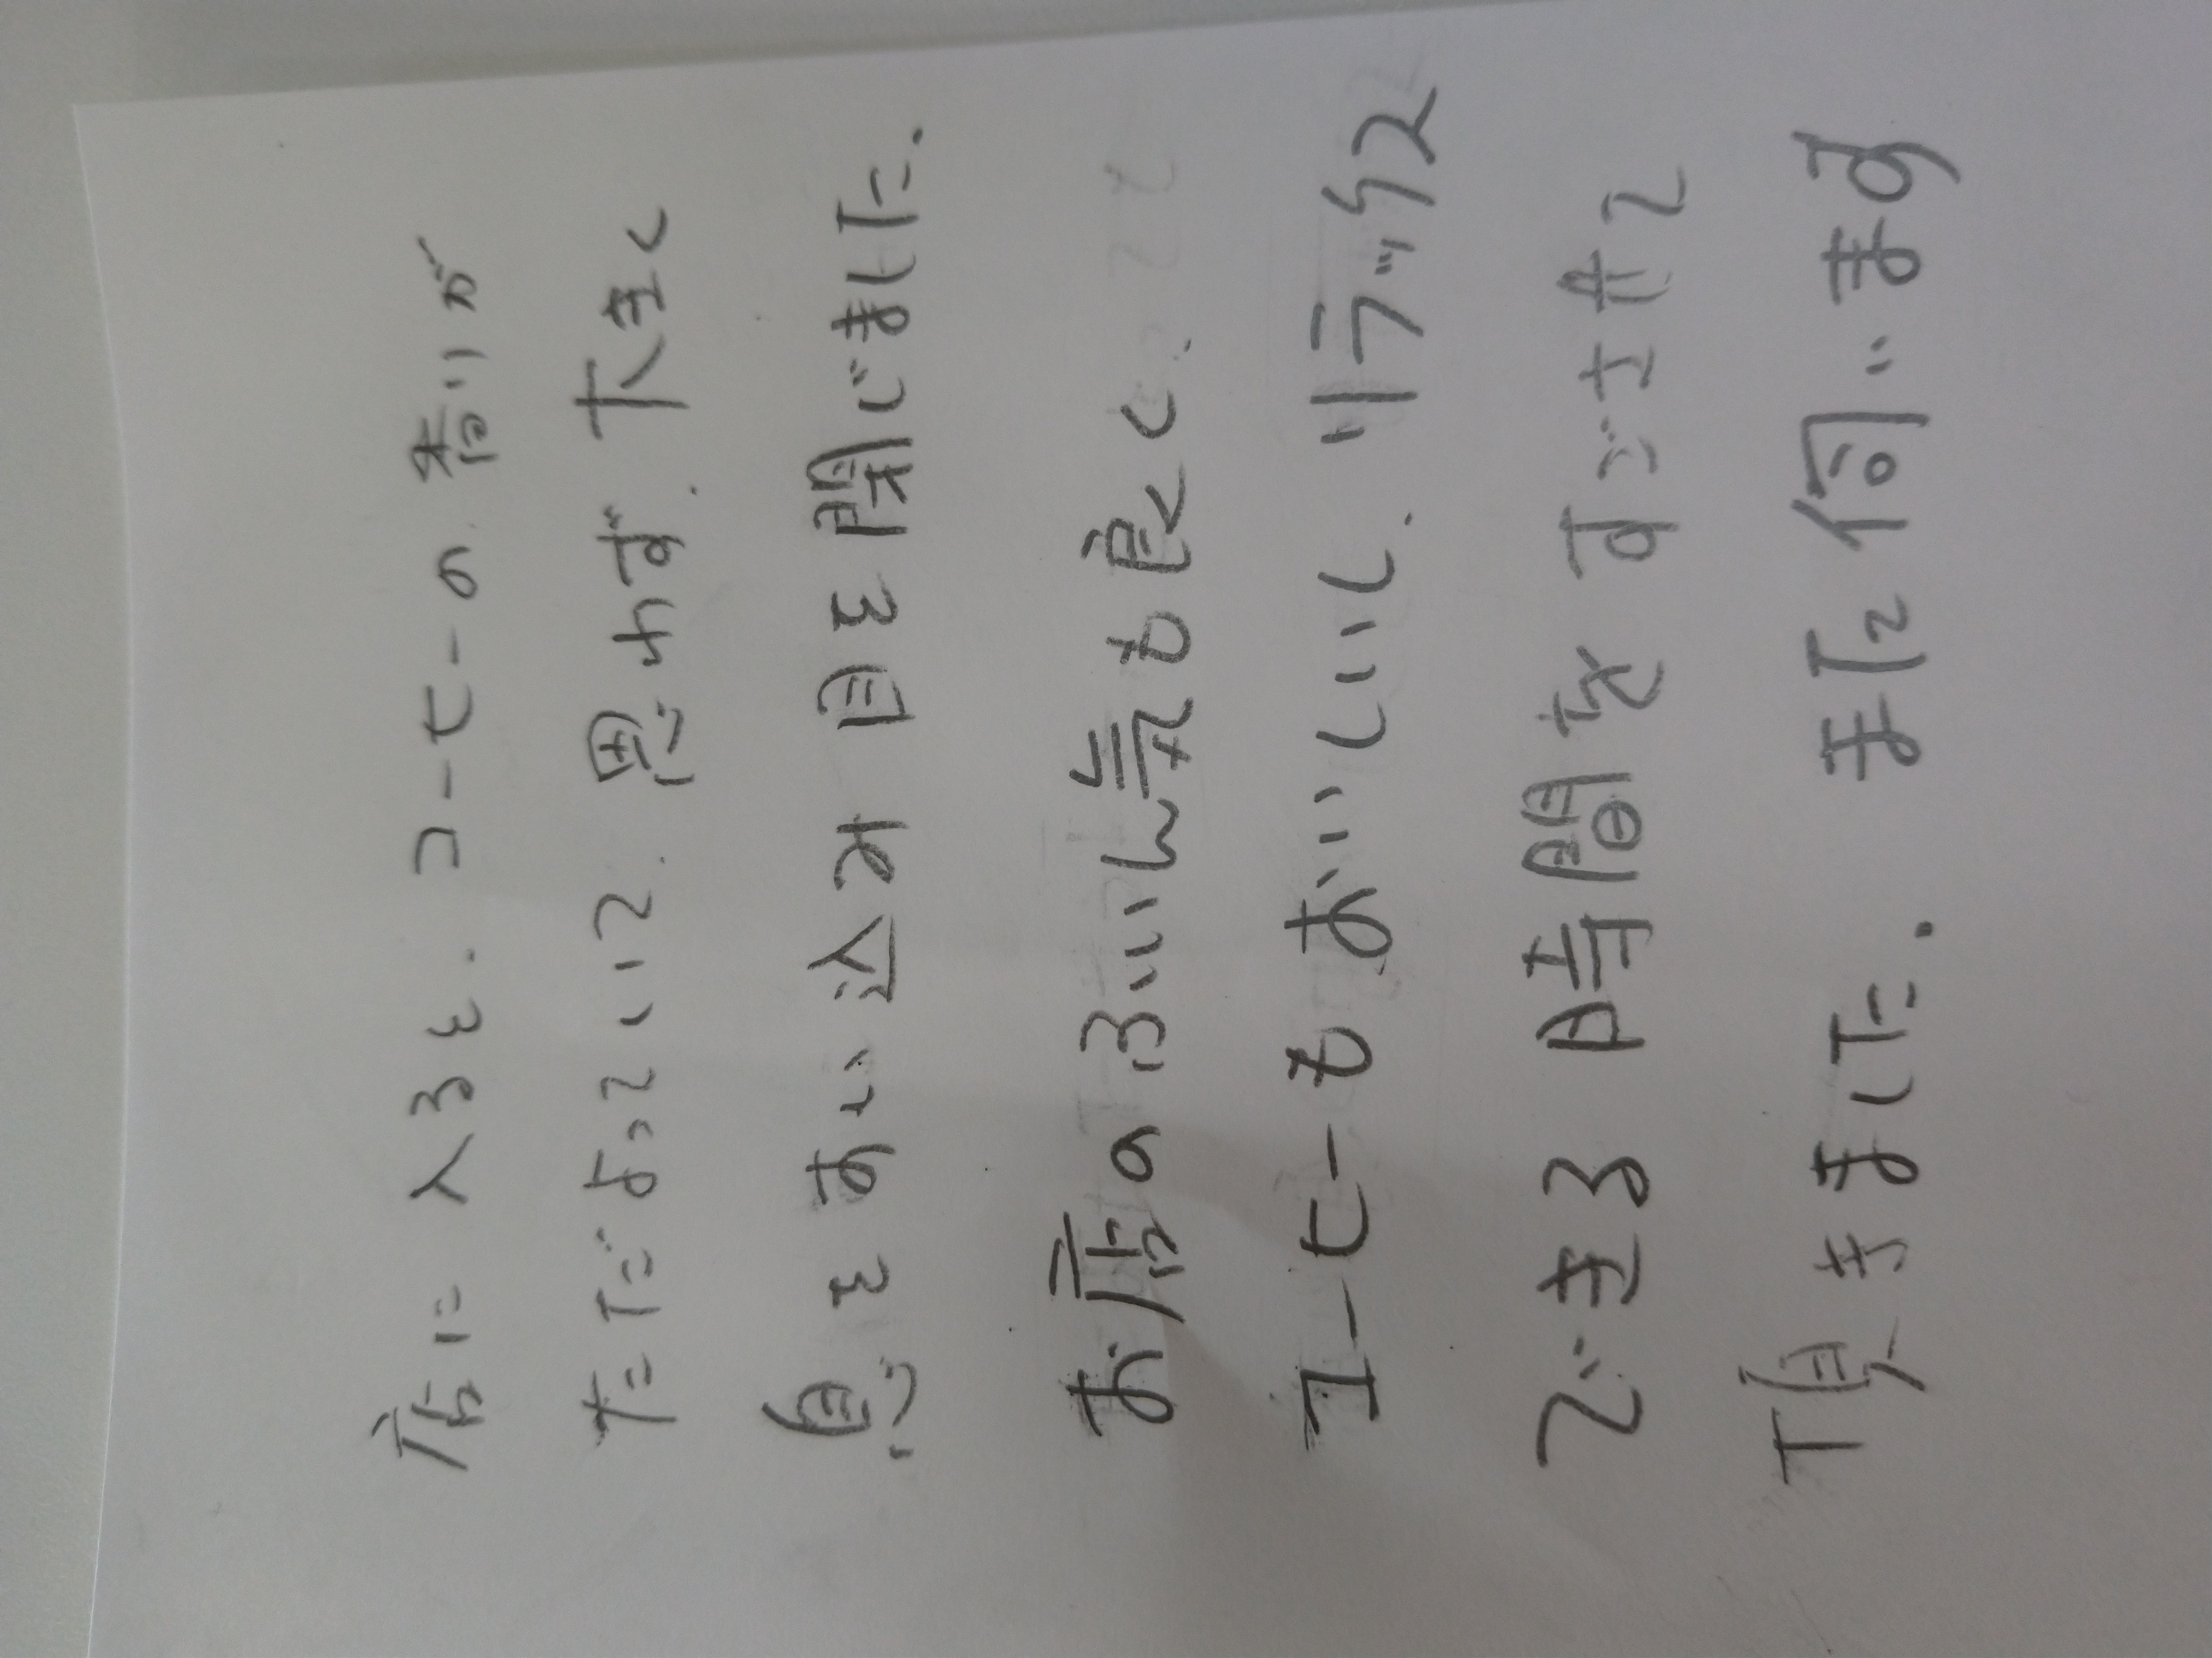 店に入ると、コーヒーの香りが
ただよっていて、思わず、大きく
息をすい込み目を閉じました。
お店のふいん気も良く、
コーヒーもおいしいし、リラックス
できる時間をすごさせて
頂きました。また伺います